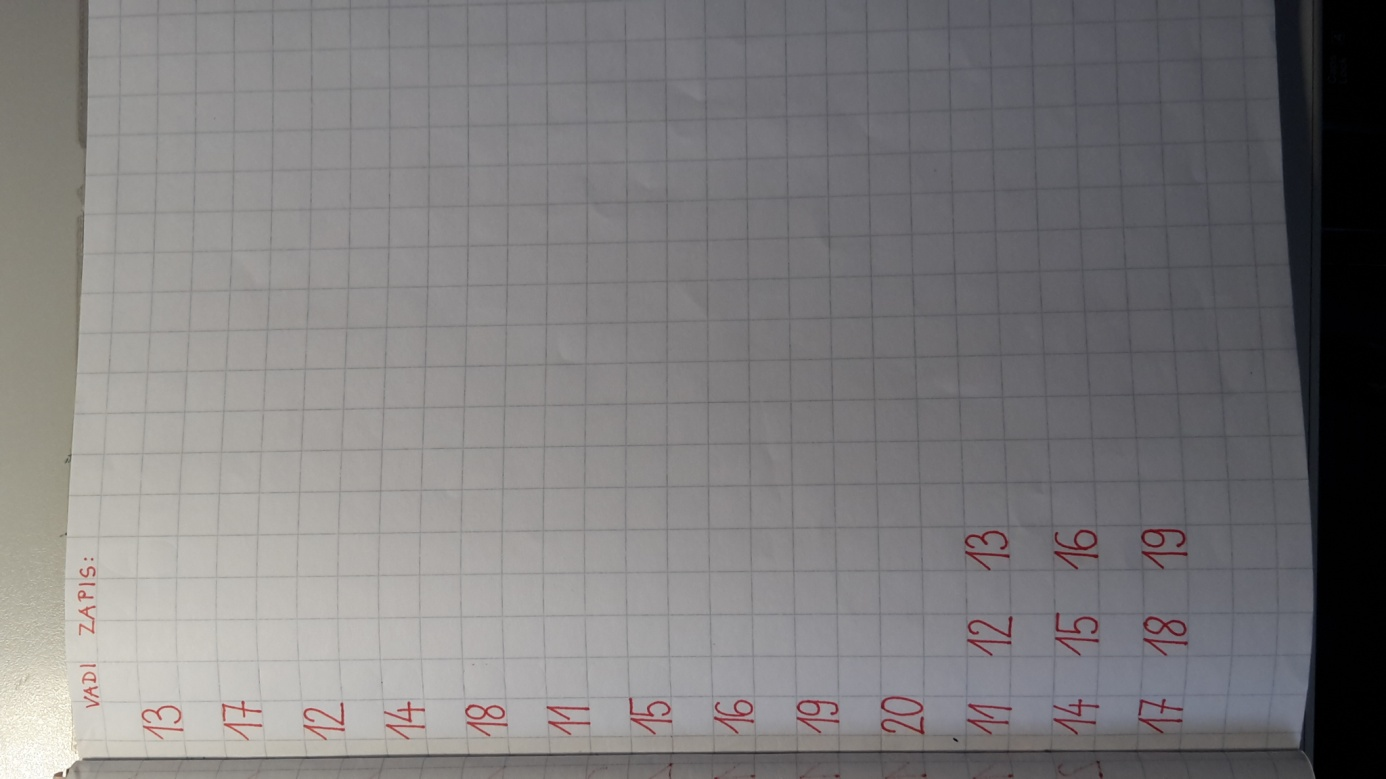 VADI ZAPIS:
13
17
12
14
18
11
15
16
19
20
11 12 13
14 15 16
17 18 19